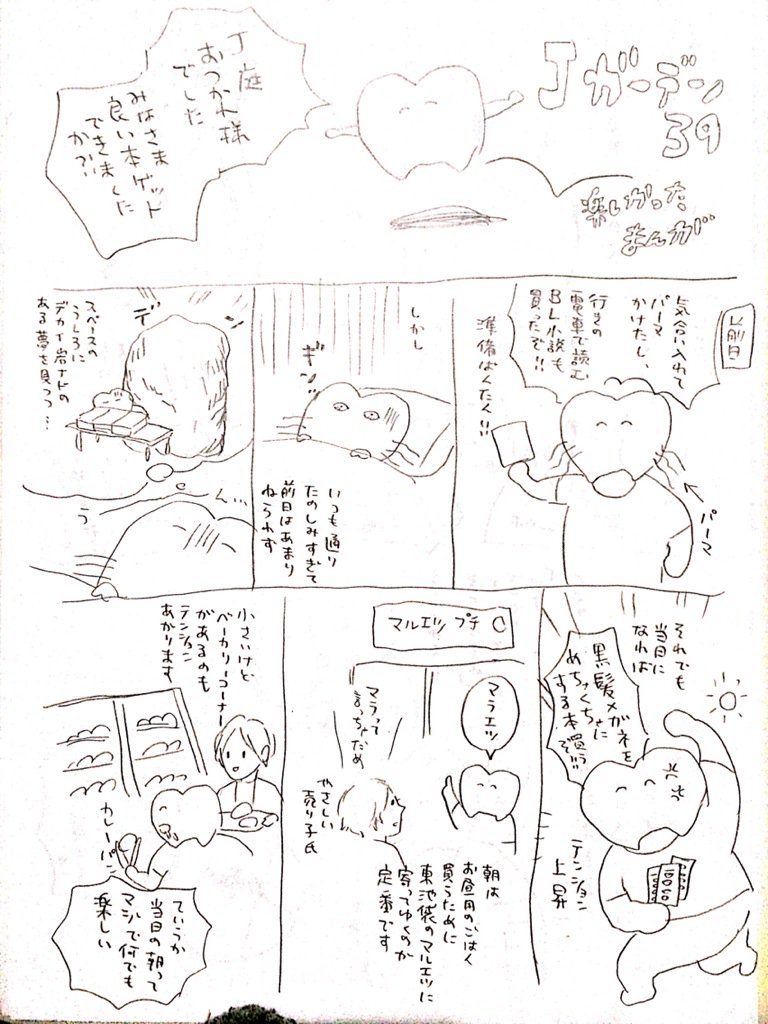 Jガーデン
39
楽しかった
まんが
J庭
おつかれ様
でした
みなさま
良い本ゲット
できました
か?!
前日
気合い入れて
パーマ
かけたし、
行きの
電車で読む
BL小説も
買ったぞ!!
準備ばんたん!!
パーマ
しかし
ギン
いつも通り
たのしみすぎて
前日はあまり
ねられず
スペースの
うしろに
デカイ岩ナドの
ある夢を見つつ…
デ
う
ん…
それでも
当日に
なれば
黒髪メガネを
めちゃくちゃに
する本買うぞ!!
テンション
上昇
マルエツ プチ C
マラエツ
マラって
言っちゃだめ
やさしい
売り子氏
朝は
お昼用のごはん
買うために
東池袋のマルエツに
寄ってゆくのが
定番です
小さいけど
ベーカリーコーナー
があるのも
テンション
あがります
カレーパン
ていうか
当日の朝って
マジで何でも
楽しい